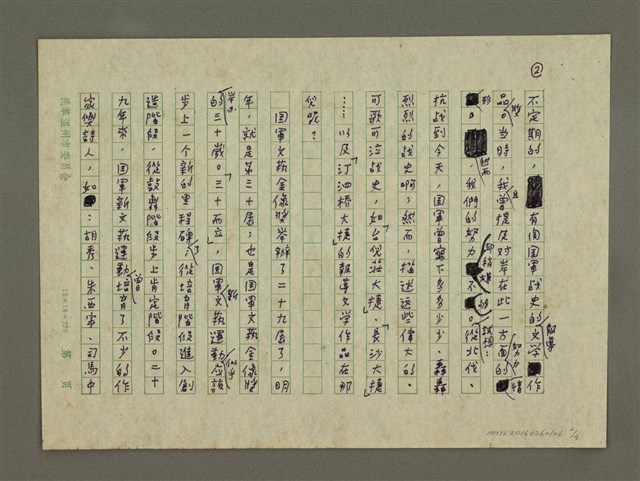 ②
不定期的，有關国軍战史的文学報導作
品。当時，我曾提及对岸在此一方面的努力情
形。然而，我們的努力不够。從北伐、
抗战到今天，国軍曾寫下多多少少、轟轟
烈烈的战史啊！然而，描述这些偉大的、
可歌可泣战史，如台兒莊大捷、長沙大捷
……以及汀泗橋大捷的報導文学作品在那
兒呢？
国軍文藝金像獎举辦了二十九屆了，明
年，就是第三十屆，也是国軍文藝金像獎
的三十歲。「三十而立」，国軍新文藝運動似乎應該
步上一个新的里程碑了，從培育階段進入創
造階段，從鼓舞階段步上肯定階段。二十
九年來，国軍新文藝運動曾培育了不少的作
家與詩人，如：胡秀、朱西甯、司馬中
15×18＝270
第 頁